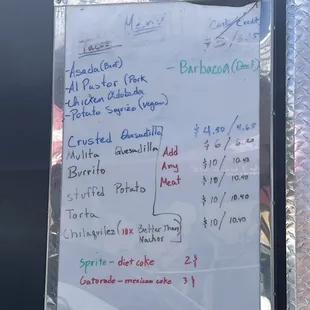 Menu
Cash/Credit
Tacos
$3/3.25
-Asada (Beef)
-Barbacoa (Beef)
-Al Pastor (Pork
-Chicken Adobada
-Potato Soyrizo (Vegan)
Crusted Quesadilla $4.50/4.65
Mulita Quesadilla $6/6.20
Add Any Meat
Burrito $10/10.40
Stuffed Potato $10/10.40
Torta $10/10.40
Chilaquilez (10x Better Than Nachos) $10/10.40
Sprite - diet coke 2$
Gatorade - mexican coke 3$